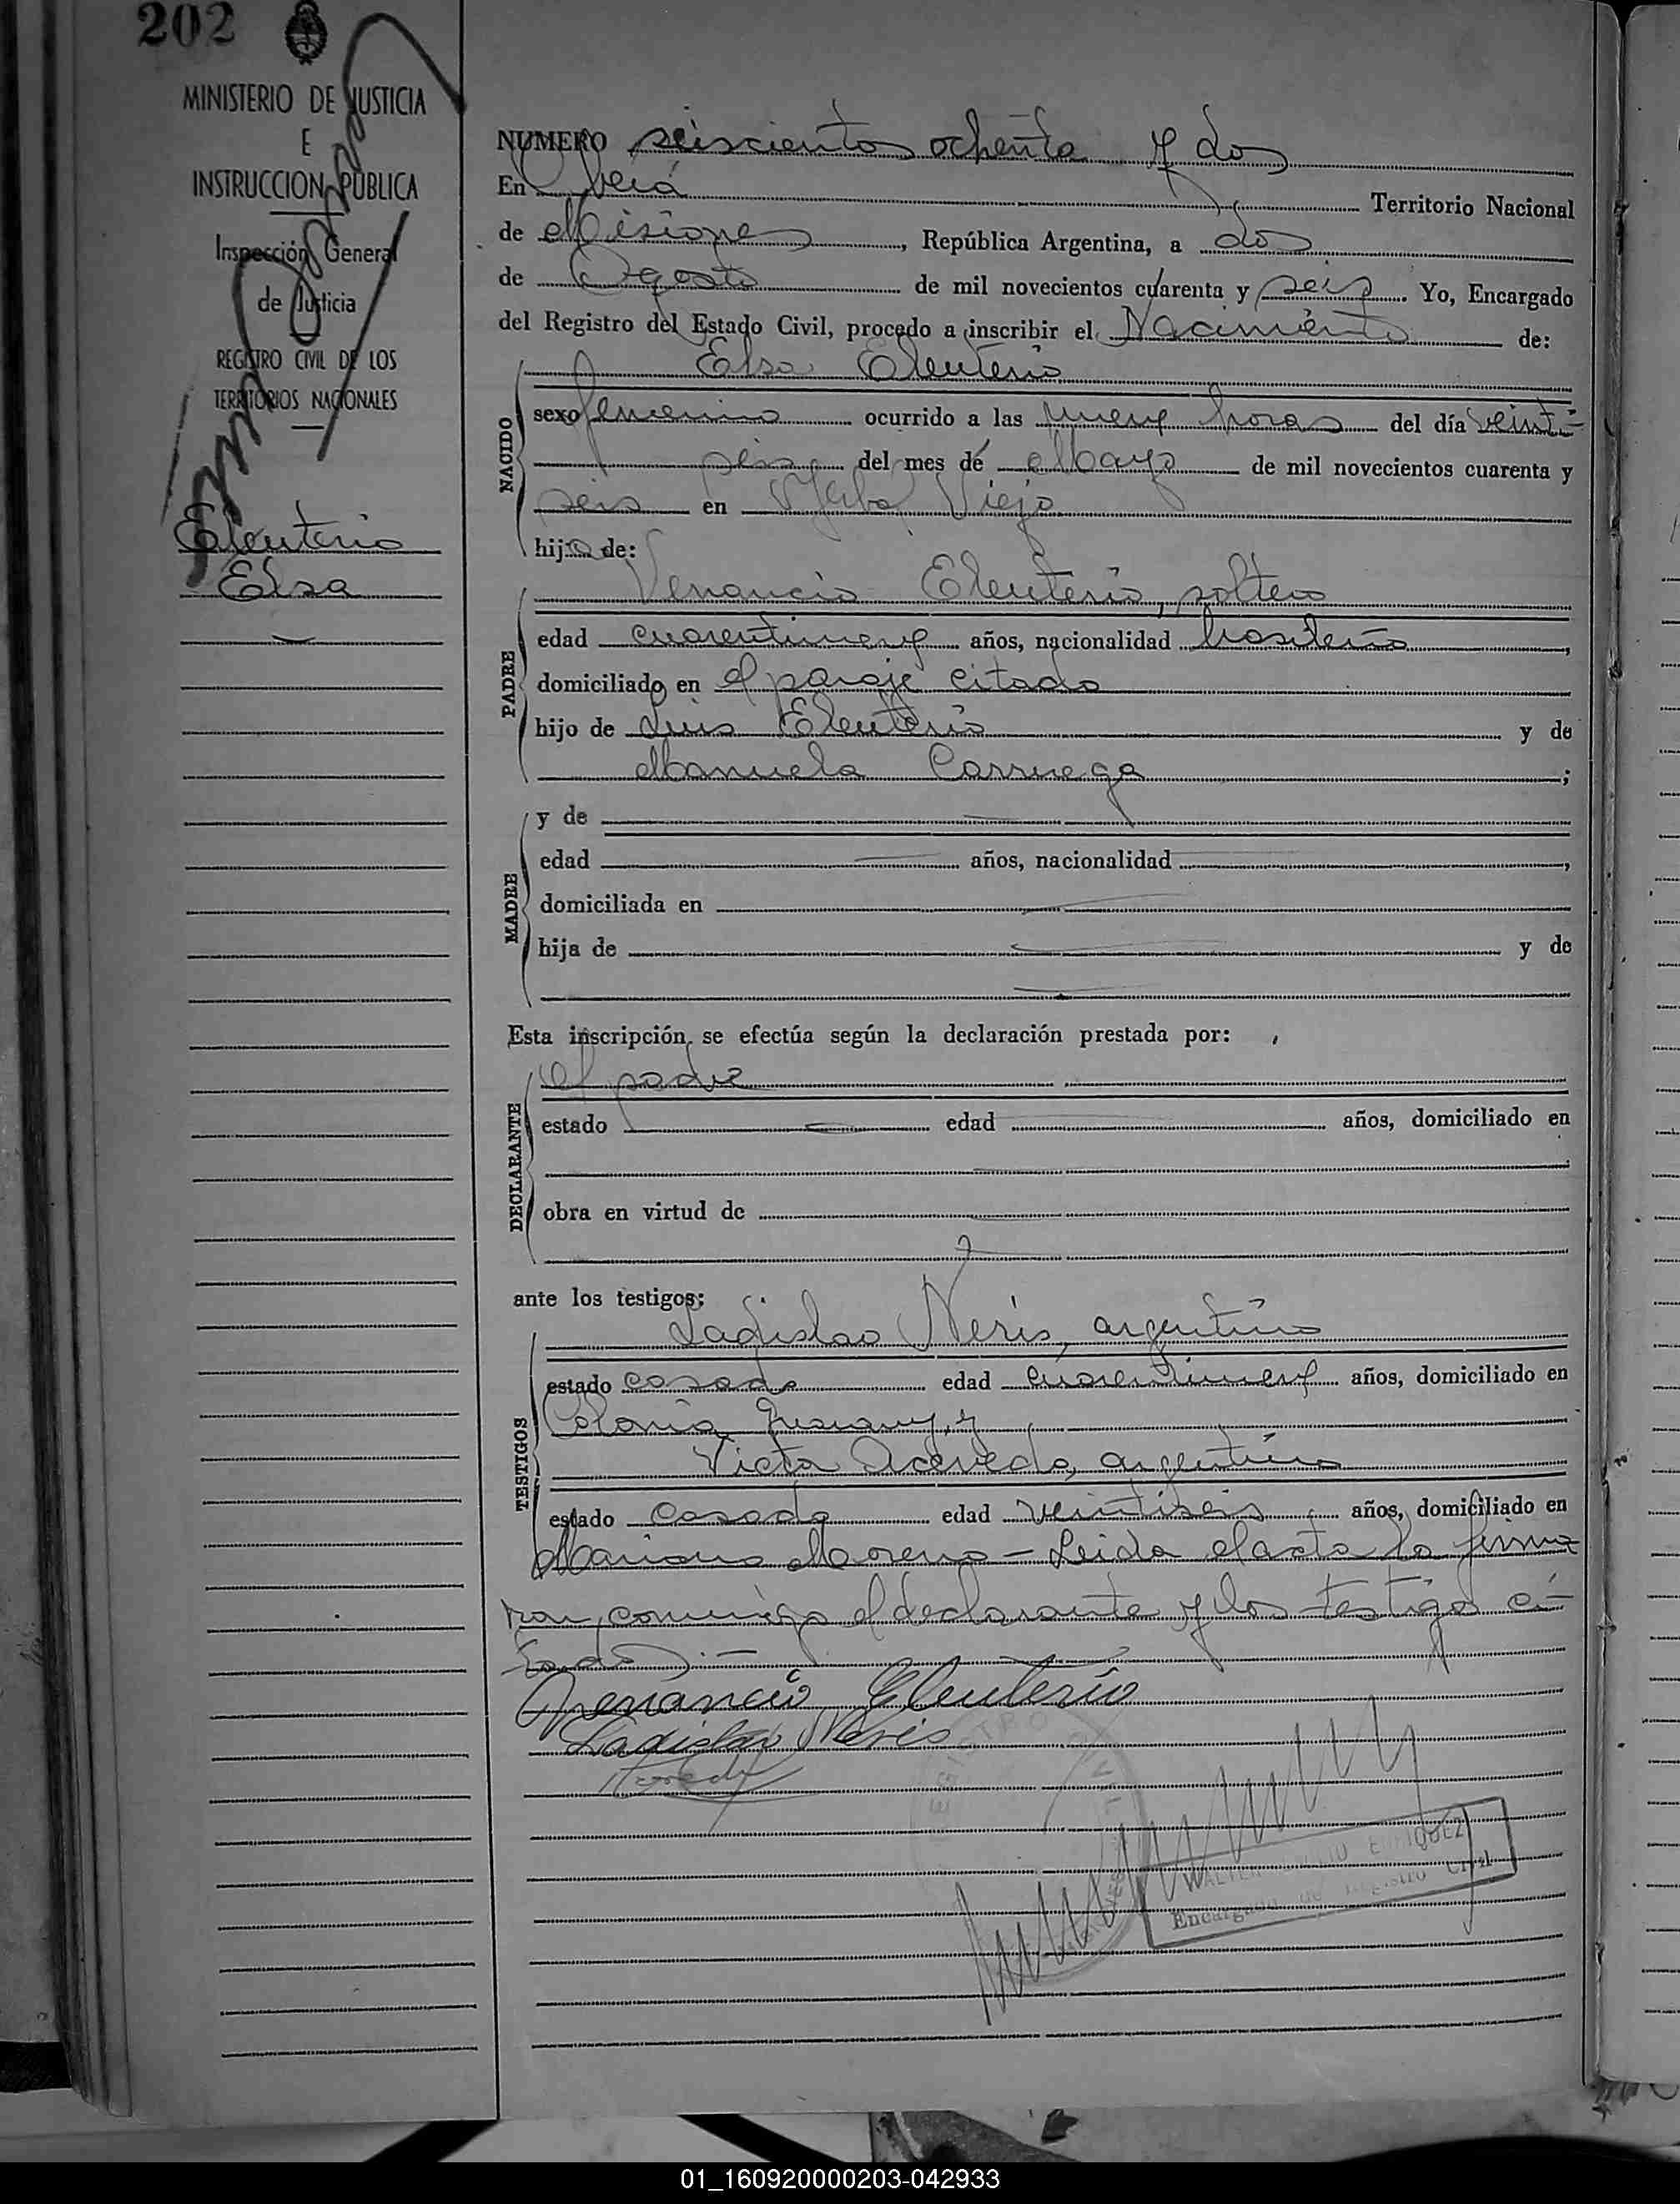 202
MINISTERIO DE JUSTICIA
E
INSTRUCCION PUBLICA
Inspección General
de Justicia
REGISTRO CIVIL DE LOS
TERRITORIOS NACIONALES
Eleuterio
Elsa
NUMERO seiscientos ochenta y dos
En Oberá Territorio Nacional
de Misiones, República Argentina, a dos
de Agosto de mil novecientos cuarenta y seis. Yo, Encargado
del Registro del Estado Civil, procedo a inscribir el Nacimiento de:
Elsa Eleuterio
NACIDO
sexo femenino ocurrido a las nueve horas del día veinti-
seis del mes de Mayo de mil novecientos cuarenta y
seis en Yerbal Viejo
hija de:
PADRE
Venancio Eleuterio, soltero
edad cuarentinueve años, nacionalidad brasileño,
domiciliado en el paraje citado
hijo de Luis Eleuterio y de
Manuela Carruega;
MADRE
y de
edad años, nacionalidad ,
domiciliada en
hija de y de
Esta inscripción se efectúa según la declaración prestada por:
DECLARANTE
el padre
estado edad años, domiciliado en
obra en virtud de
ante los testigos:
TESTIGOS
Ladislao Neris, argentino
estado casado edad cuarentinueve años, domiciliado en
Colonia Guarany, y
Victor Acevedo, argentino
estado casado edad veintiseis años, domiciliado en
Mariano Moreno - Leida el acta la firma
ron, conmigo el declarante y los testigos ci-
tados.-
Venancio Eleuterio
Ladislao Neris
Acevedo
REGISTRO CIVIL
WALTER ENRIQUEZ
Encargado de Registro Civil
01_160920000203-042933